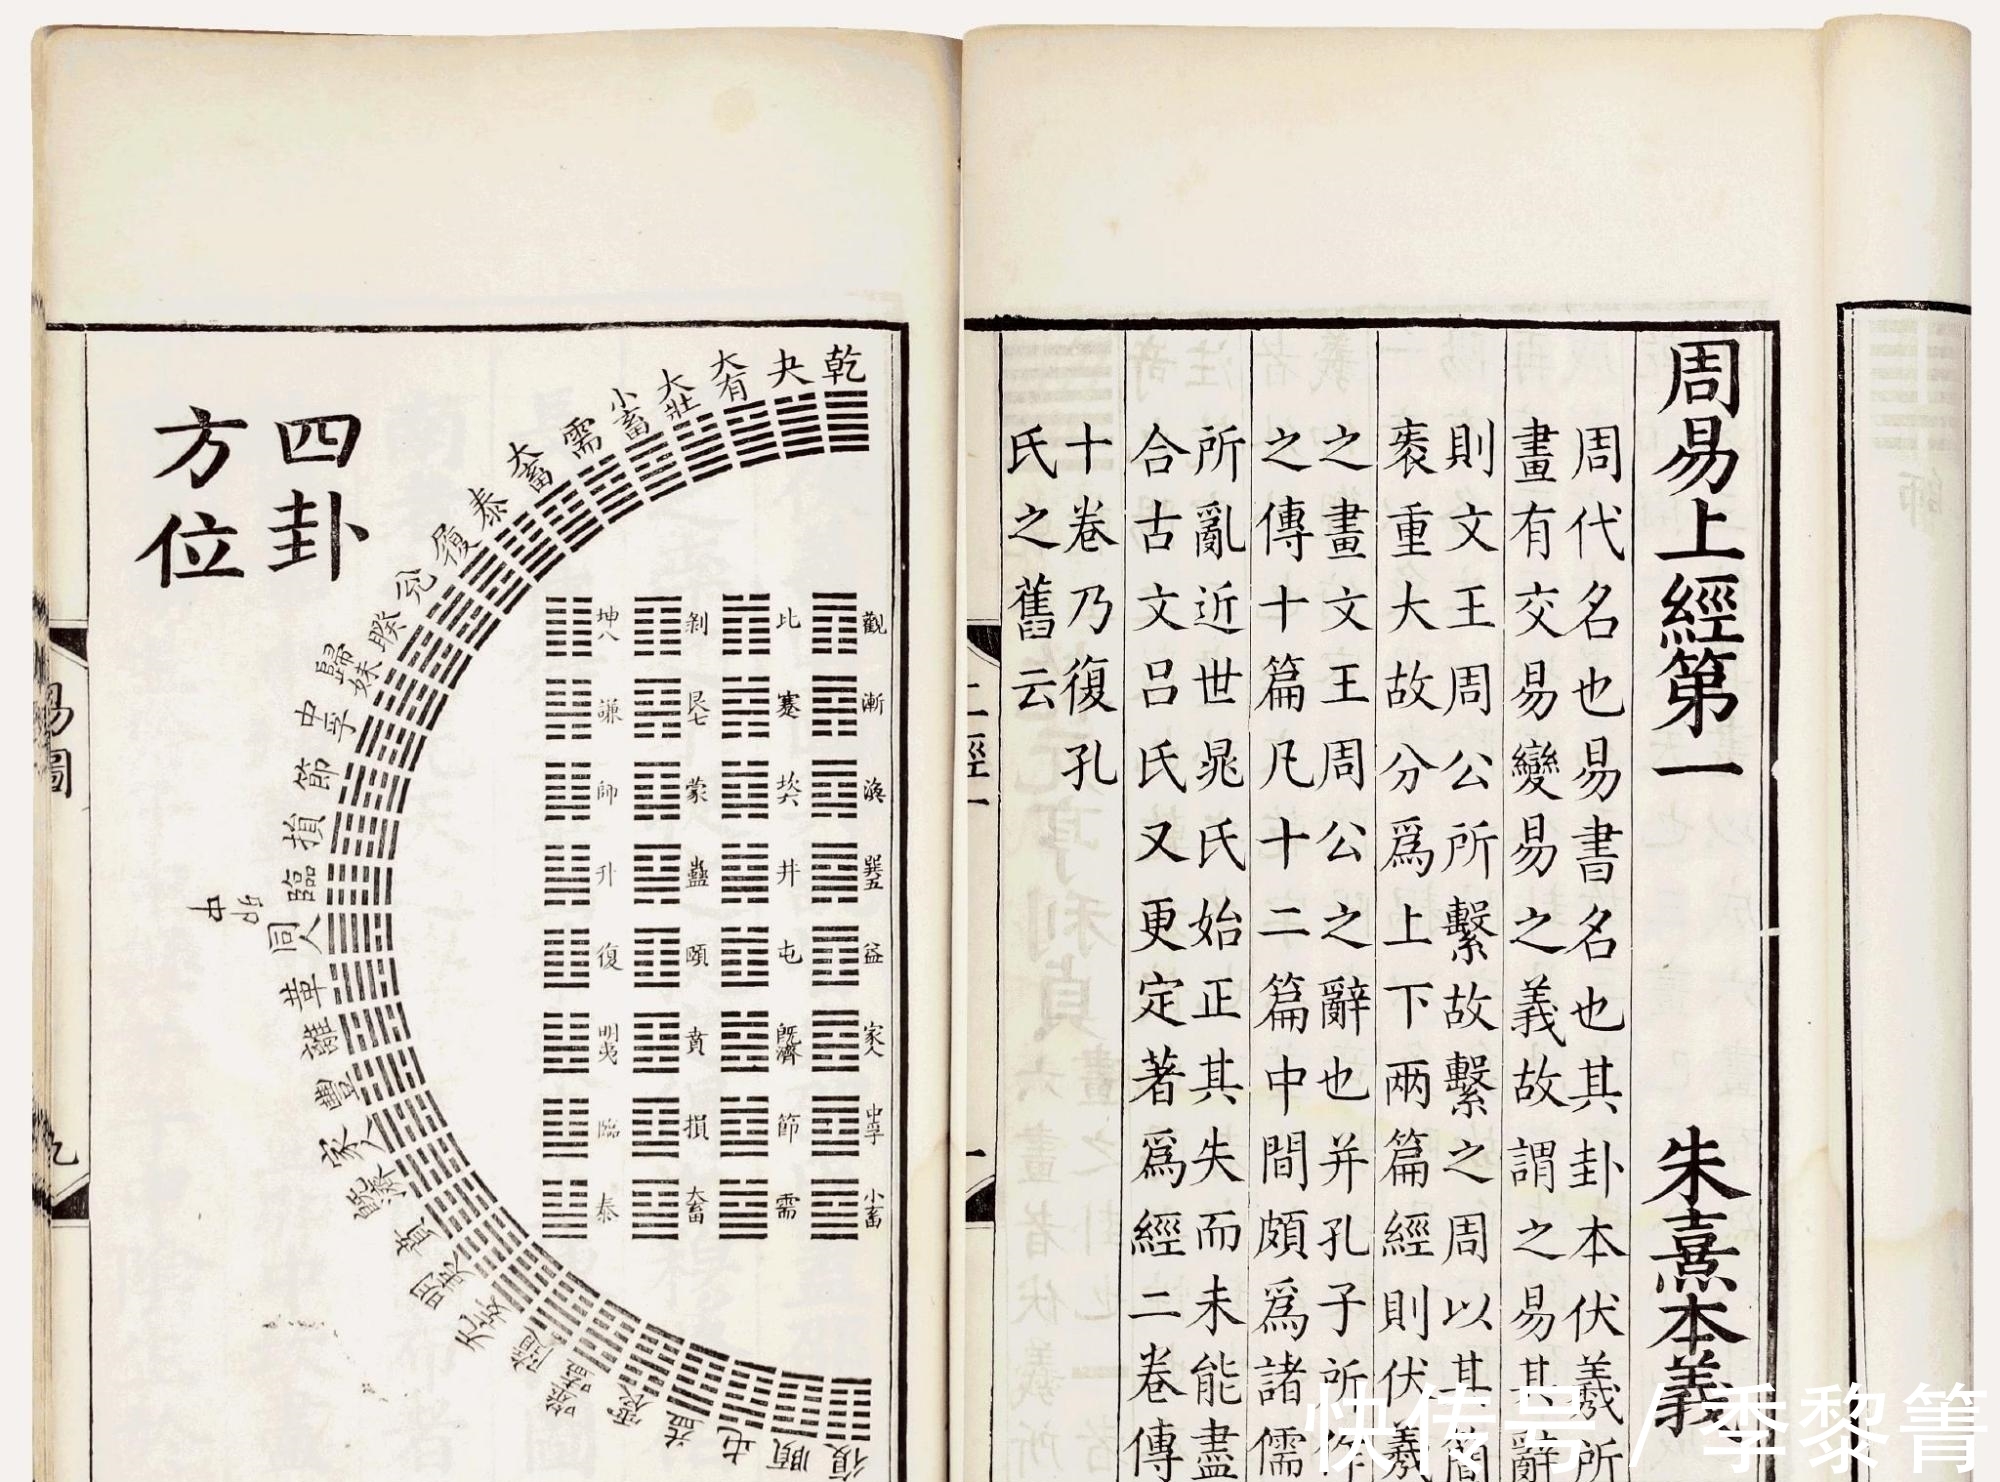 周易上經第一
朱熹本義
周代名也易書名也其卦本伏羲所
畫有交易變易之義故謂之易其辭
則文王周公所繫故繫之周以其簡
袠重大故分爲上下兩篇經則伏羲
之畫文王周公之辭也并孔子所作
之傳十篇凡十二篇中間頗爲諸儒
所亂近世晁氏始正其失而未能盡
合古文吕氏又更定著爲經二卷傳
十卷乃復孔
氏之舊云
上經一
一
乾
夬
大有
大壯
小畜
需
大畜
泰
履
兌
睽
歸妹
中孚
節
損
臨
同人
革
離
豐
家人
既濟
賁
明夷
无妄
隨
噬嗑
震
益
屯
頤
復
卯中
觀
比
剝
坤八
漸
蹇
艮七
謙
渙
坎六
蒙
師
巽五
井
蠱
升
益
屯
頤
復
家人
既濟
賁
明夷
中孚
節
損
臨
小畜
需
大畜
泰
四卦
方位
易圖
九
師
快传号 / 季黎箐